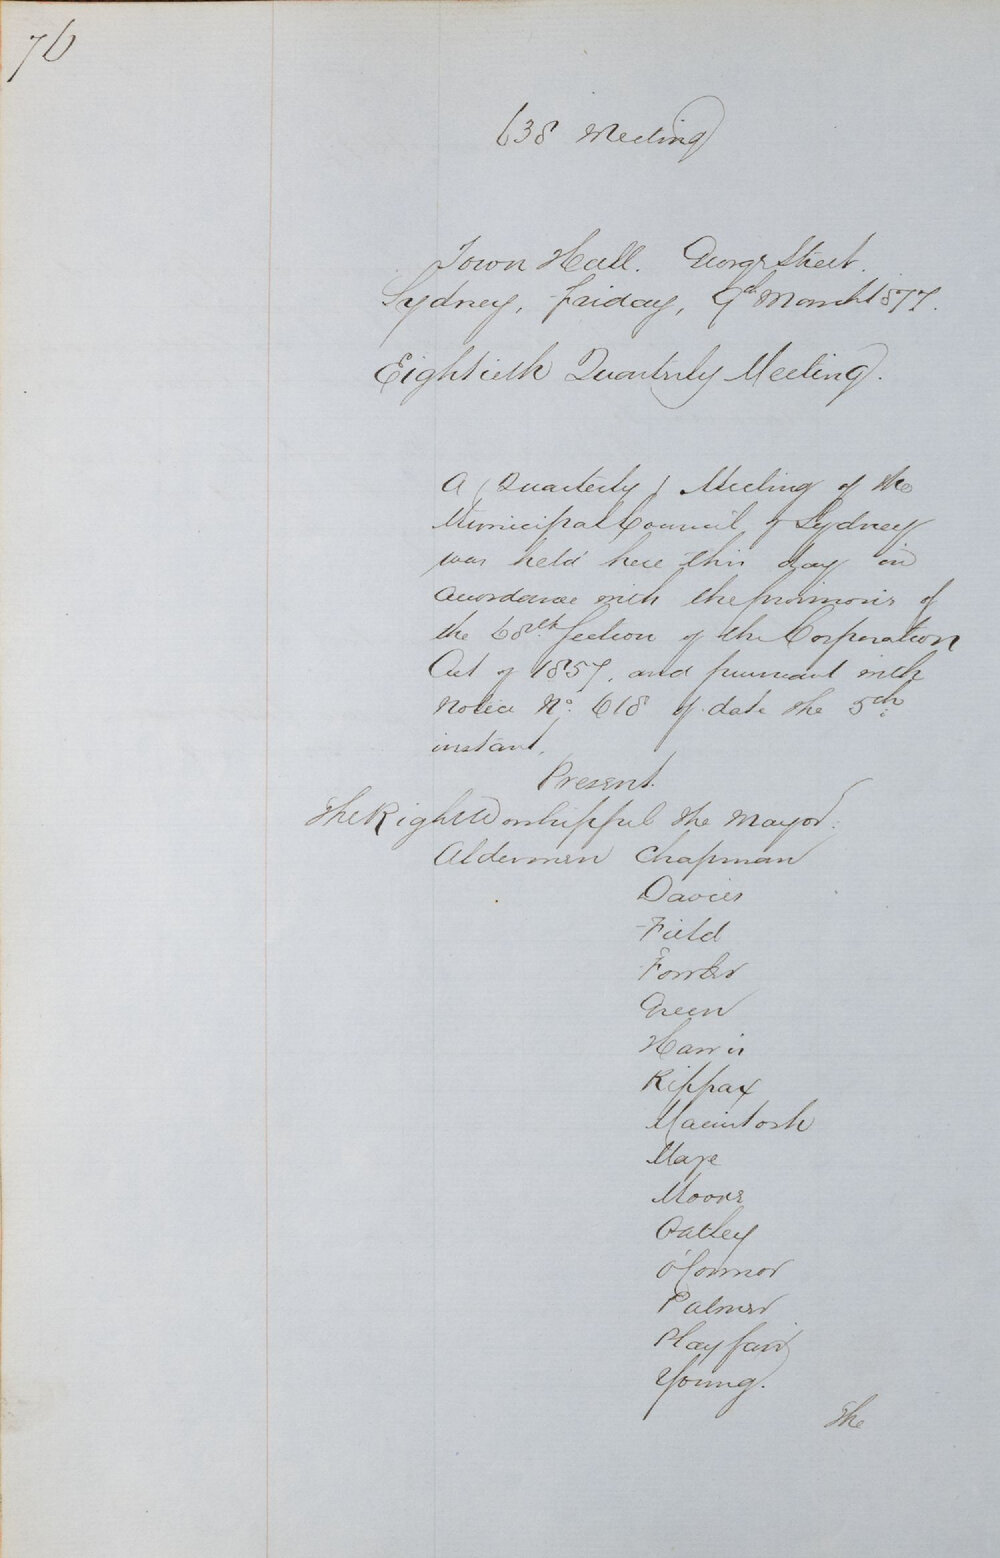 76
638 Meeting
Town Hall. George Street.
Sydney, Friday, 9th March 1877.
Eightieth Quarterly Meeting.
A (Quarterly) Meeting of the
Municipal Council of Sydney
was held here this day in
accordance with the provisions of
the 68th Section of the Corporation
Act of 1857, and pursuant with
Notice No. 618 of date the 5th
instant.
Present.
The Right Worshipful the Mayor.
Aldermen Chapman
Davies
Field
Fowler
Green
Harris
Kippax
Macintosh
Maze
Moore
Oatley
O'Connor
Palmer
Playfair
Young.
The